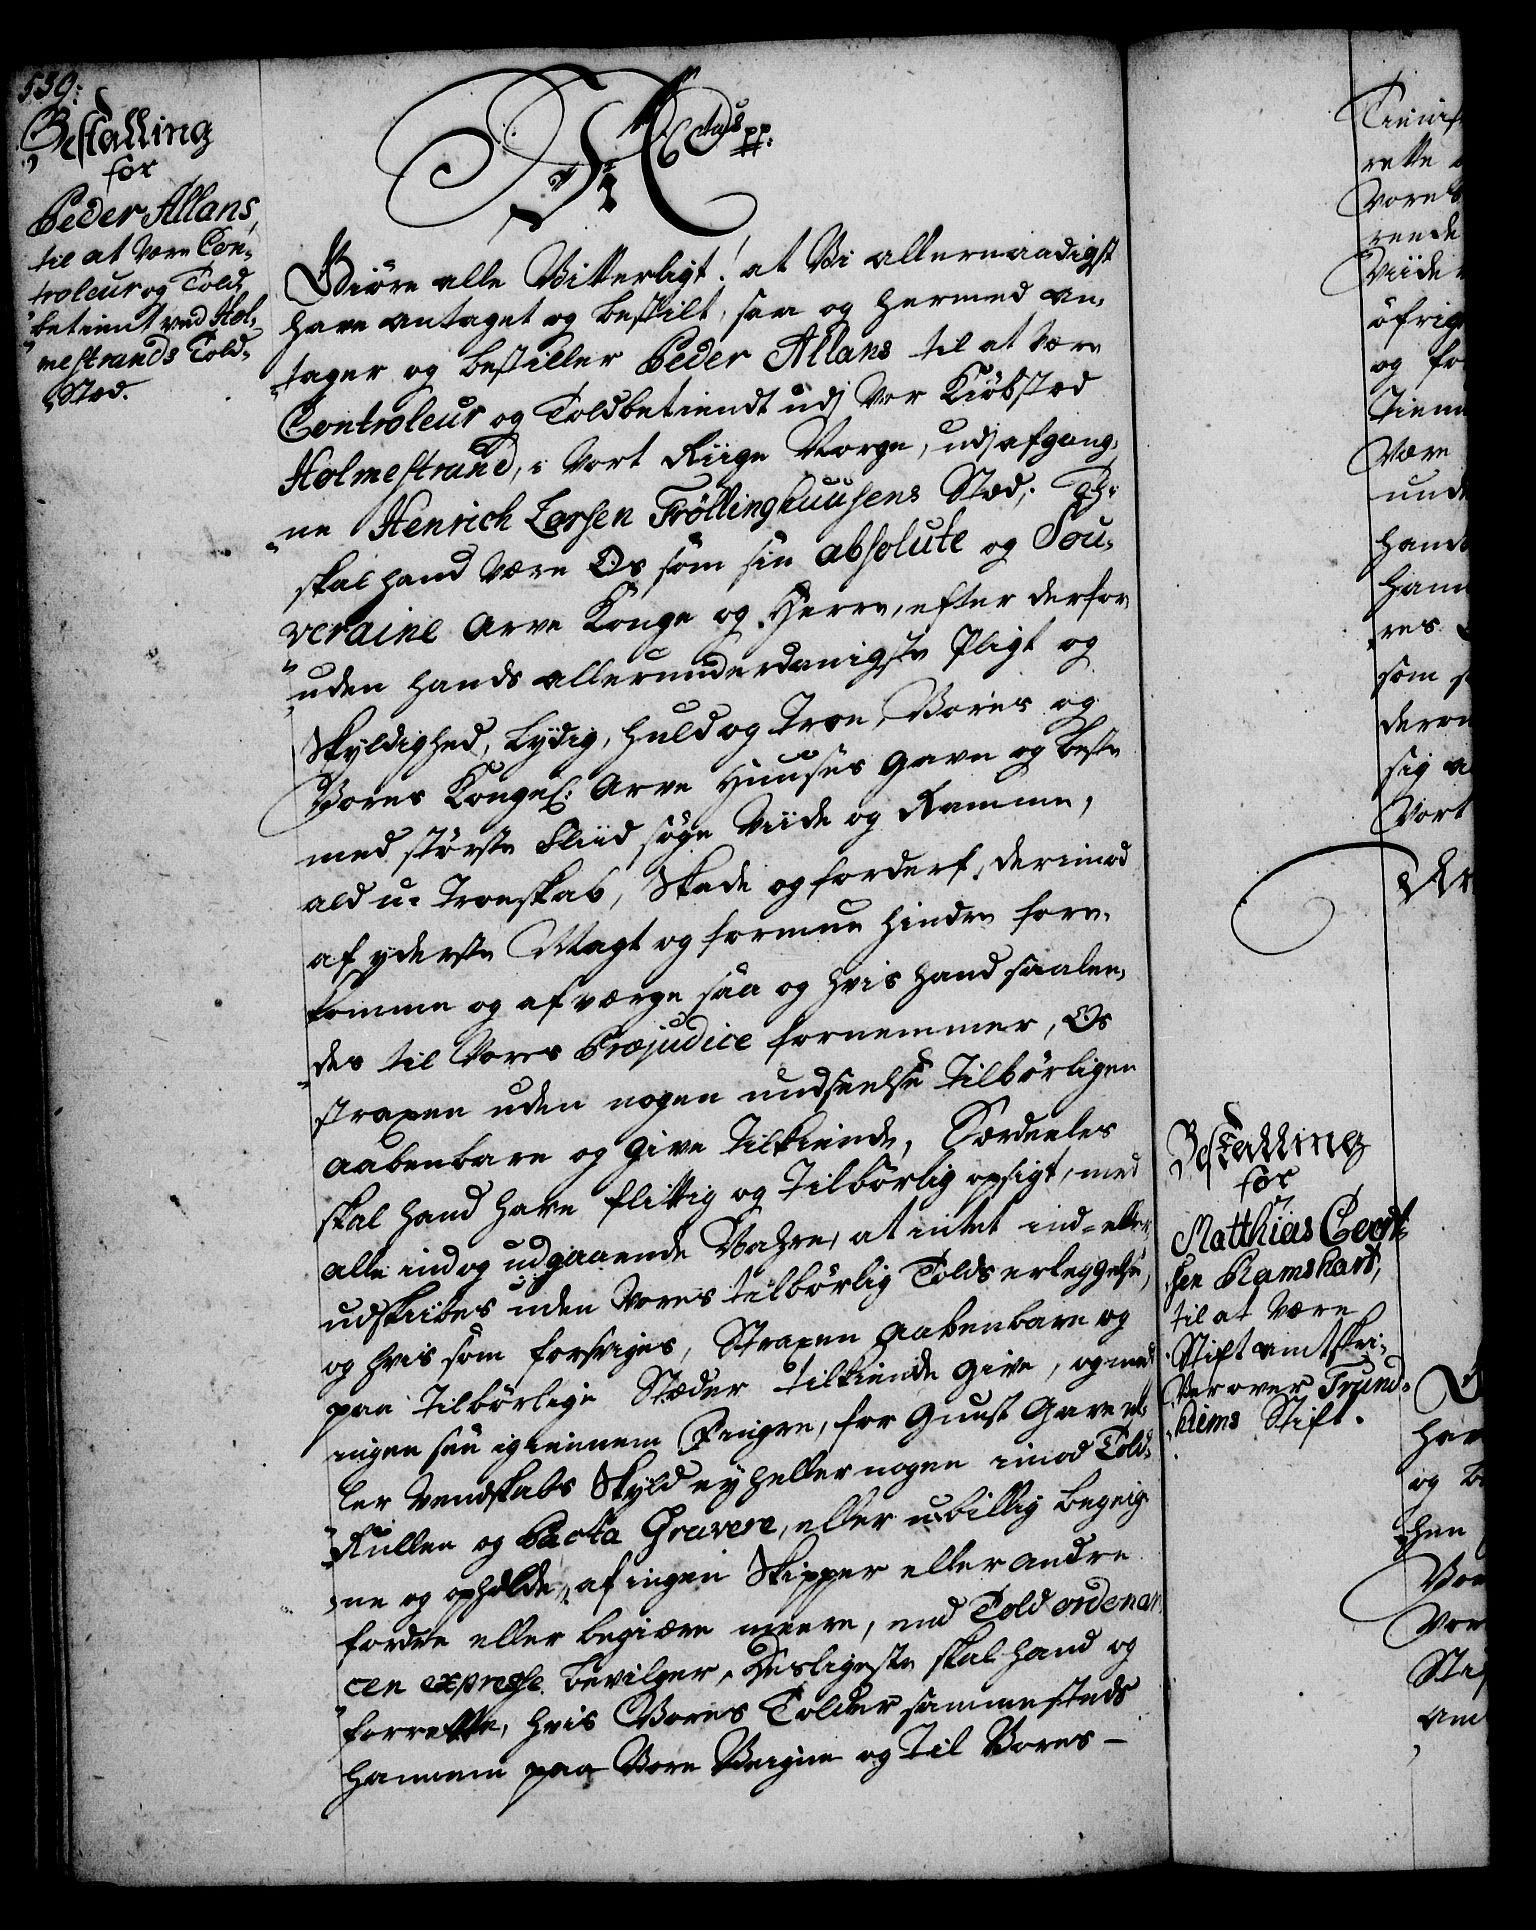 539:
Bestalling
for
Peder Allans,
til at være Con-
troleur og Told
betient ved Hol-
mestrands Told-
Sted.
Ctus pp:
Giöre alle Vitterligt! at Vi allernaadigst
have antaget og bestilt, saa og hermed an-
tager og bestiller Peder Allans til at være
Controleur og Toldbetiendt udj Vor Kiöbsted
Holmestrand, i Vort Riige Norge, udj afgang-
ne Henrich Larsen Fröllinghuusens Sted;
skal hand være Os som sin absolute og Sou-
veraine Arve Konge og Herre, efter derfor
uden hands allerunderdanigste Pligt og
Skyldighed, Lydig, huld og Troe, Voris og
Vores Kongel: Arve Huuses gavn og beste
med störste Fliid söge Viide og Ramme,
ald u-Troeskab, Skade og forderf, derimod
af yderste Magt og formue hindre fore-
komme og afværge saa og hvis hand saalen-
des til Vores Præjudice fornemmer, Os
straxen uden nogen undseelse Tilbörligen
aabenbare og give tilkiende, Særdeeles
skal hand have flittig og Tilbörlig opsigt, med
alle ind og udgaaende Vahre, at intet ind- eller
udskibes uden Vores tilbörlig Tolds erleggelse,
og hvis som forsviges, Straxen aabenbare og
paa Tilbörlige Stæder tilkiende give, og med
ingen see igiennem Fingre, for Gunst Gave el-
ler Vendskabs Skyld ey heller nogen imod Told-
Rullen og Pacta Gravere, eller ubillig begeig-
ne og opholde, af ingen Skipper eller andre
fordre eller begiære meere, end Told ordenan-
cen expresse bevilger, Desligeste skal hand og
forrette, hvis Vores Tolder sammesteds
hannem paa Vore Veigne og til Vores-
rette
Vores
rende
Viide
öfrig
og for
Tien
Være
und
hand
ham
res
som
deru
sig
Vort
Bestalling
for
Matthias Geert-
sen Ramshart,
til at være
Stift amtskri-
ver over Trund-
hiems Stift.
hav
og be
hen
Vor
Vor
Stif
am